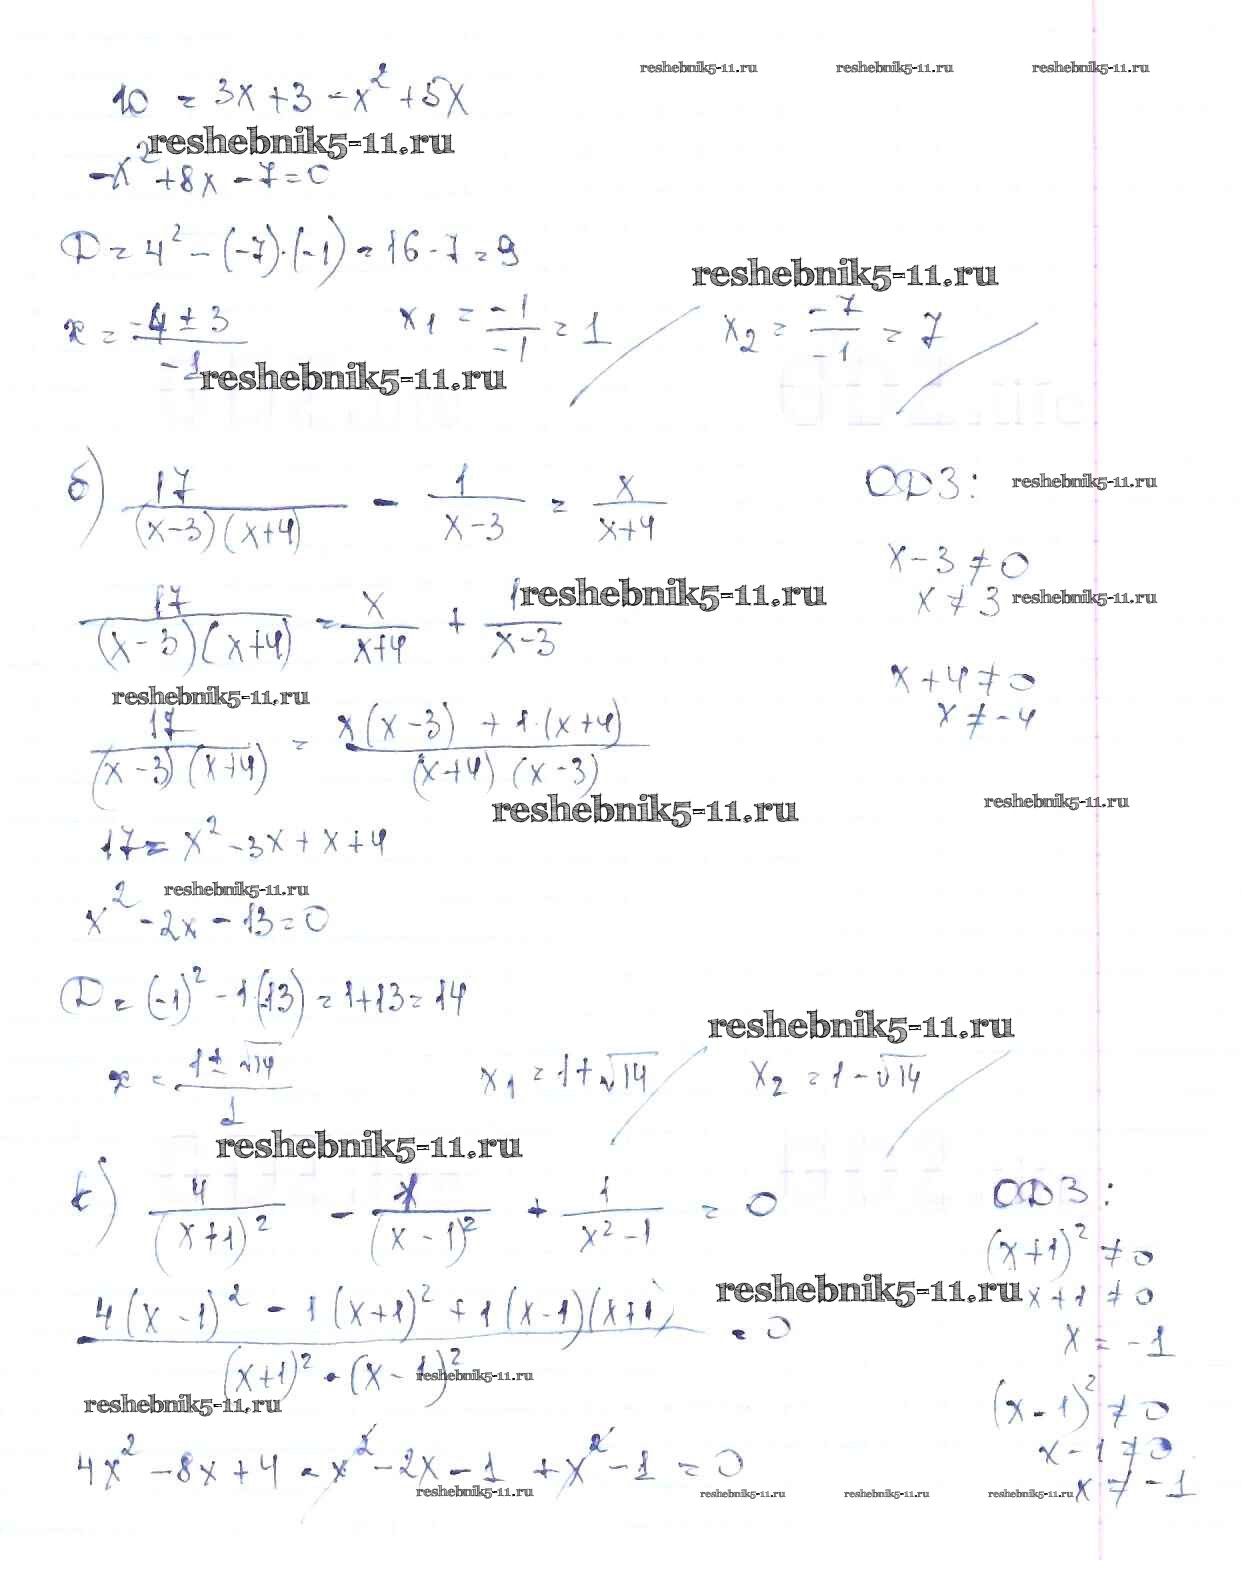 reshebnik5-11.ru reshebnik5-11.ru reshebnik5-11.ru
10 = 3x + 3 - x² + 5x
reshebnik5-11.ru
-x² + 8x - 7 = 0
D = 4² - (-7)·(-1) = 16 - 7 = 9
reshebnik5-11.ru
x = (-4 ± 3)/(-1) x₁ = -1/-1 = 1 x₂ = -7/-1 = 7
reshebnik5-11.ru
б) 17/((x-3)(x+4)) - 1/(x-3) = x/(x+4) ОДЗ: reshebnik5-11.ru
x - 3 ≠ 0
17/((x-3)(x+4)) = x/(x+4) + 1/(x-3) reshebnik5-11.ru
x ≠ 3 reshebnik5-11.ru
x + 4 ≠ 0
reshebnik5-11.ru
x ≠ -4
17/((x-3)(x+4)) = (x(x-3) + 1·(x+4))/((x+4)(x-3))
reshebnik5-11.ru reshebnik5-11.ru
17 = x² - 3x + x + 4
reshebnik5-11.ru
x² - 2x - 13 = 0
D = (-1)² - 1·(-13) = 1 + 13 = 14
reshebnik5-11.ru
x = (1 ± √14)/1 x₁ = 1 + √14 x₂ = 1 - √14
reshebnik5-11.ru
4/(x+1)² - 1/(x-1)² + 1/(x²-1) = 0 ОДЗ:
(x+1)² ≠ 0
reshebnik5-11.ru x + 1 ≠ 0
(4(x-1)² - 1(x+1)² + 1(x-1)(x+1))/((x+1)²·(x-1)²) = 0
x = -1
reshebnik5-11.ru
reshebnik5-11.ru
(x-1)² ≠ 0
x - 1 ≠ 0
4x² - 8x + 4 - x² - 2x - 1 + x² - 1 = 0
x ≠ -1
reshebnik5-11.ru reshebnik5-11.ru reshebnik5-11.ru reshebnik5-11.ru